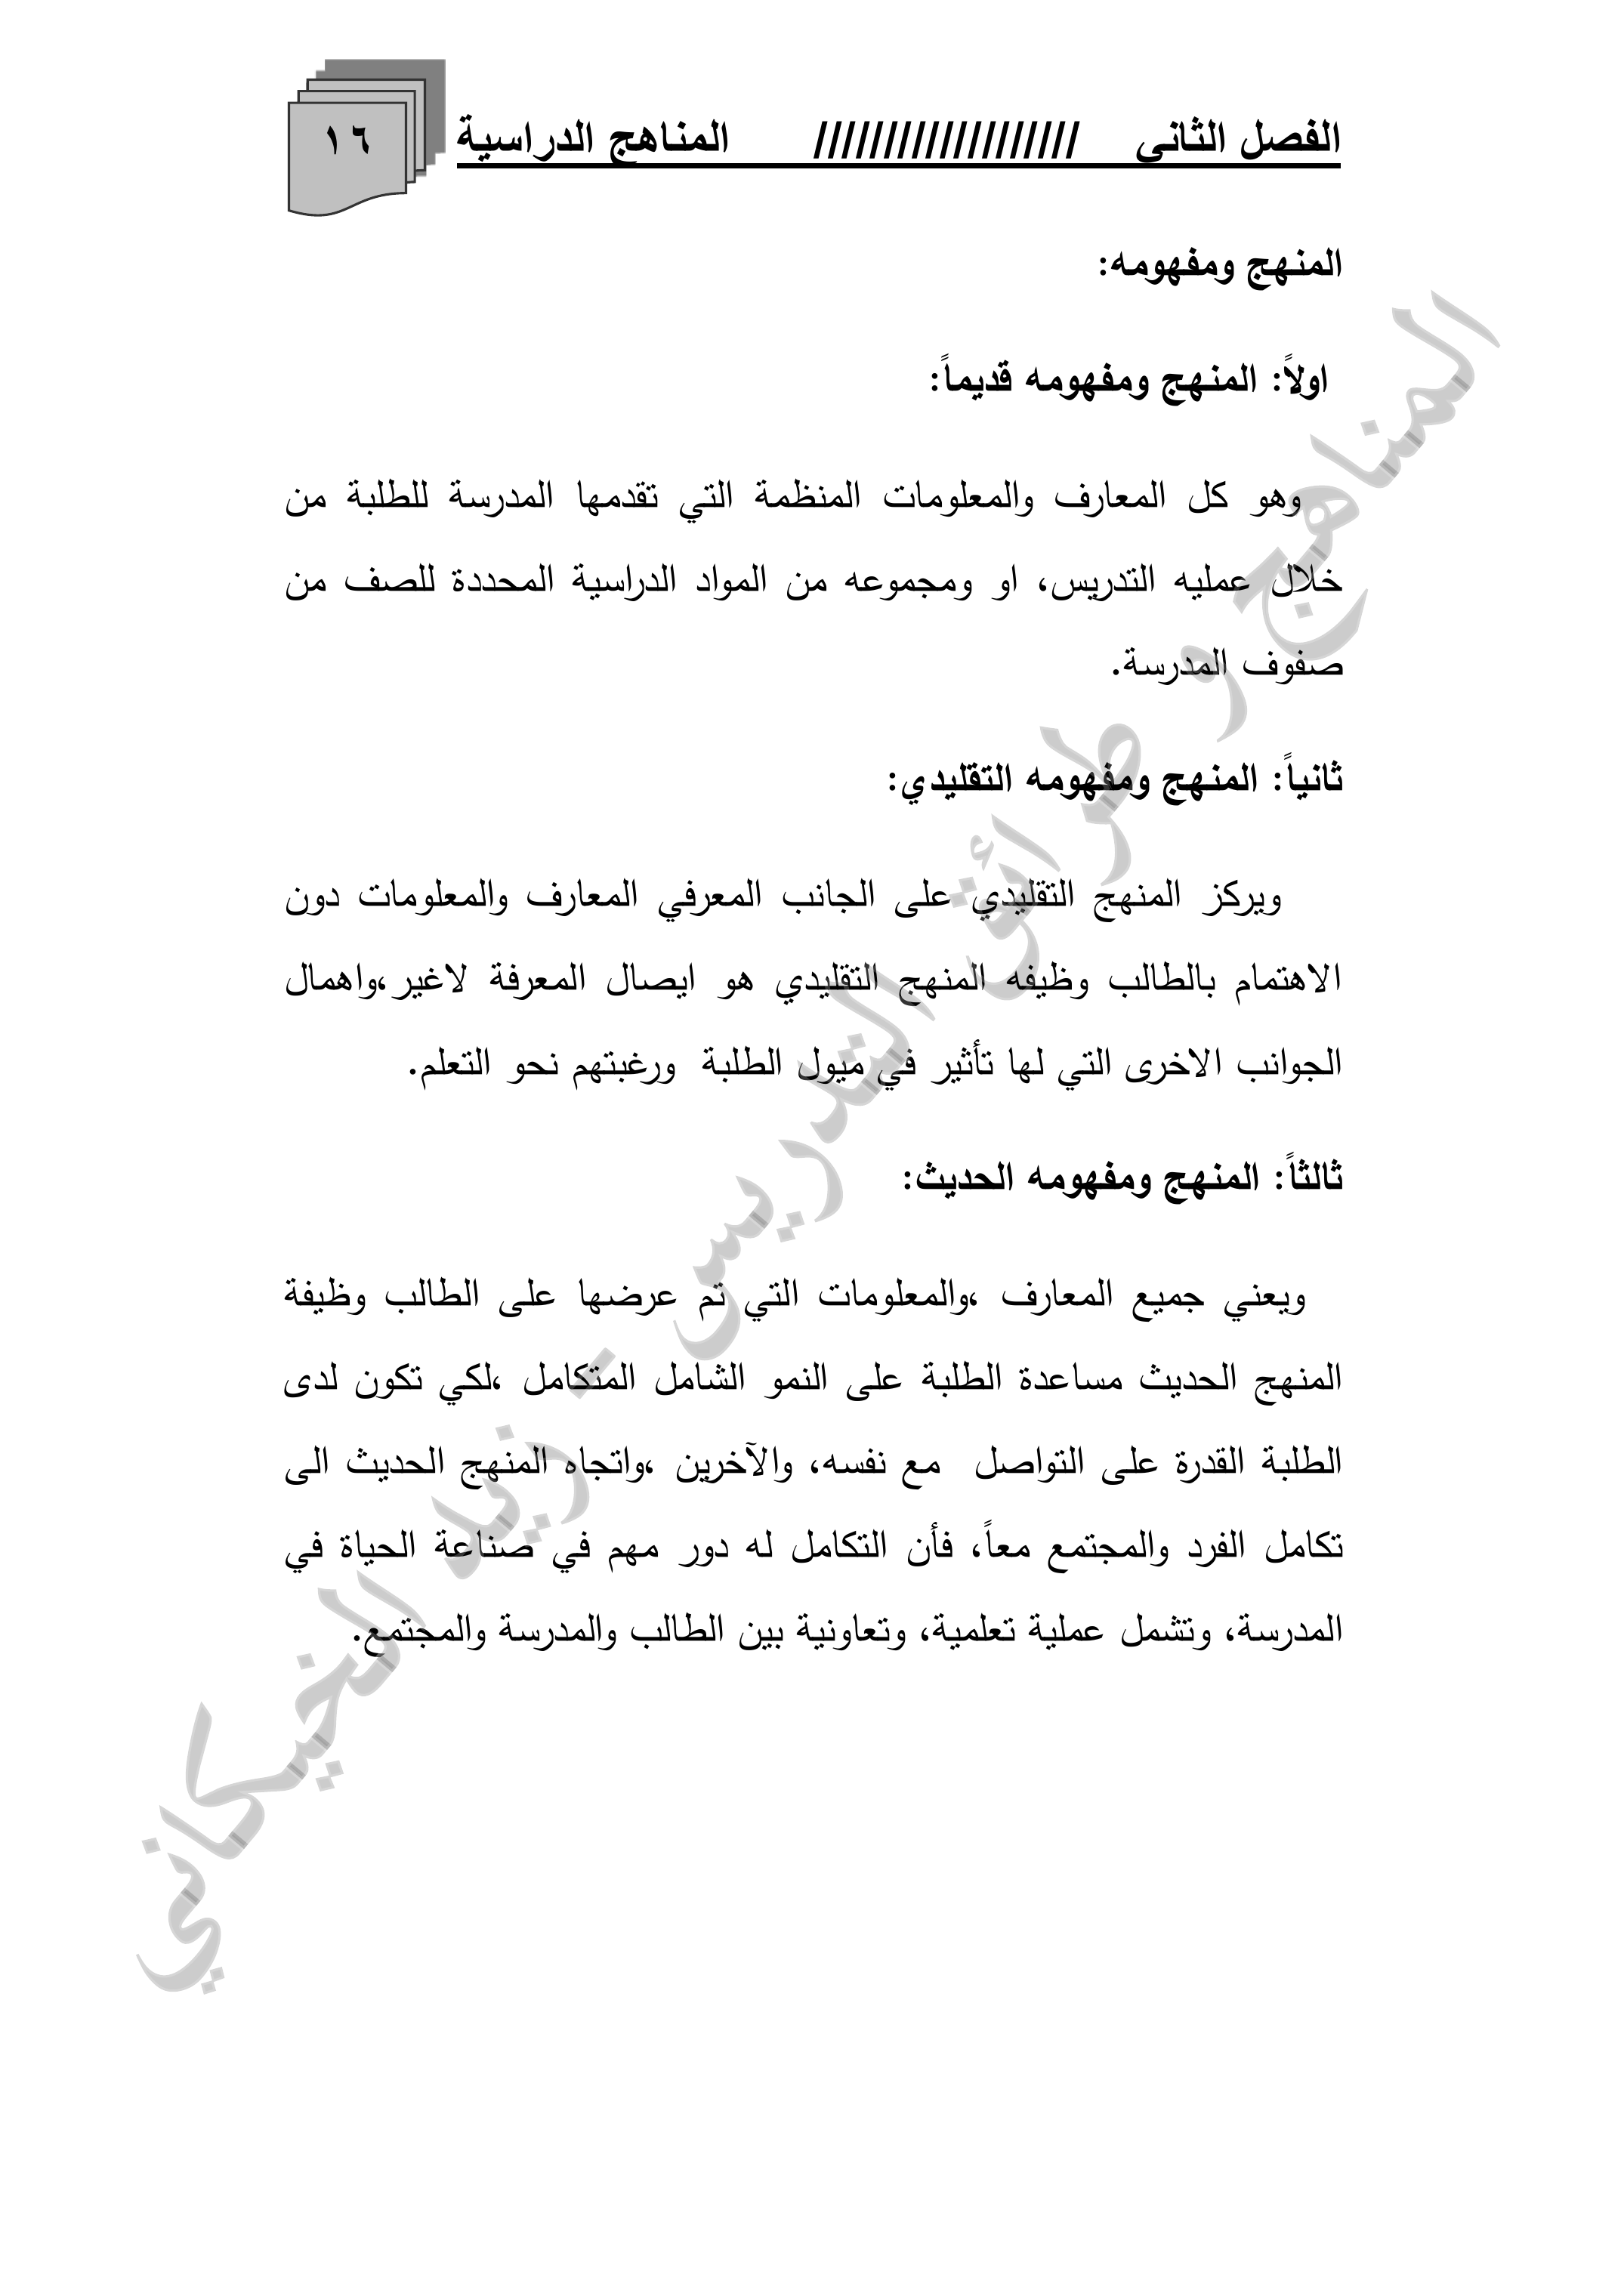 الفصل الثاني /////////////////// المناهج الدراسية ١٦
المنهج ومفهومه:
اولاً: المنهج ومفهومه قديماً:
وهو كل المعارف والمعلومات المنظمة التي تقدمها المدرسة للطلبة من
خلال عمليه التدريس، او ومجموعه من المواد الدراسية المحددة للصف من
صفوف المدرسة.
ثانياً: المنهج ومفهومه التقليدي:
ويركز المنهج التقليدي على الجانب المعرفي المعارف والمعلومات دون
الاهتمام بالطالب وظيفه المنهج التقليدي هو ايصال المعرفة لاغير،واهمال
الجوانب الاخرى التي لها تأثير في ميول الطلبة ورغبتهم نحو التعلم.
ثالثاً: المنهج ومفهومه الحديث:
ويعني جميع المعارف ،والمعلومات التي تم عرضها على الطالب وظيفة
المنهج الحديث مساعدة الطلبة على النمو الشامل المتكامل ،لكي تكون لدى
الطلبة القدرة على التواصل مع نفسه، والآخرين ،واتجاه المنهج الحديث الى
تكامل الفرد والمجتمع معاً، فأن التكامل له دور مهم في صناعة الحياة في
المدرسة، وتشمل عملية تعلمية، وتعاونية بين الطالب والمدرسة والمجتمع.
المناهج و طرائق التدريس - زيد الخيكاني